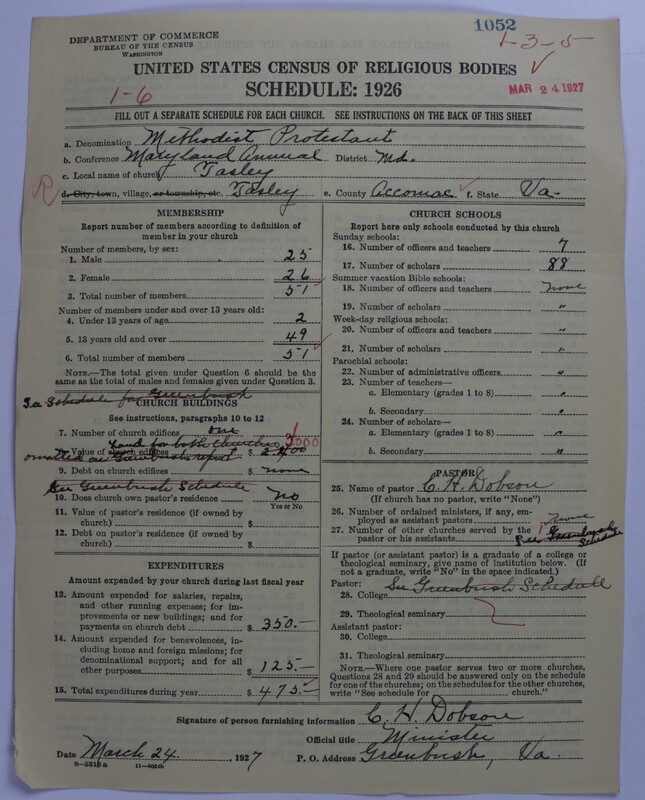 1052
1-3-5
DEPARTMENT OF COMMERCE
BUREAU OF THE CENSUS
WASHINGTON
UNITED STATES CENSUS OF RELIGIOUS BODIES
SCHEDULE: 1926
MAR 24 1927
1-6
FILL OUT A SEPARATE SCHEDULE FOR EACH CHURCH. SEE INSTRUCTIONS ON THE BACK OF THIS SHEET
a. Denomination Methodist Protestant
b. Conference Maryland Annual District Md.
c. Local name of church Tasley
R
d. City, town, village, or township, etc. Tasley e. County Accomac f. State Va.
MEMBERSHIP
Report number of members according to definition of
member in your church
Number of members, by sex:
1. Male 25
2. Female 26
3. Total number of members 51
Number of members under and over 13 years old:
4. Under 13 years of age 2
5. 13 years old and over 49
6. Total number of members 51
NOTE.—The total given under Question 6 should be the
same as the total of males and females given under Question 3.
See Schedule for Greenbush
CHURCH BUILDINGS
See instructions, paragraphs 10 to 12
7. Number of church edifices one
Land for both Churches 3000
8. Value of church edifices $
omitted on Greenbush report
9. Debt on church edifices $ none
See Greenbush Schedule
10. Does church own pastor's residence No
Yes or No
11. Value of pastor's residence (if owned by
church) $
12. Debt on pastor's residence (if owned by
church) $
EXPENDITURES
Amount expended by your church during last fiscal year
13. Amount expended for salaries, repairs,
and other running expenses; for im-
provements or new buildings; and for
payments on church debt $ 350.—
14. Amount expended for benevolences, in-
cluding home and foreign missions; for
denominational support; and for all
other purposes $ 125.—
15. Total expenditures during year $ 475.—
CHURCH SCHOOLS
Report here only schools conducted by this church
Sunday schools:
16. Number of officers and teachers 7
17. Number of scholars 88
Summer vacation Bible schools:
18. Number of officers and teachers none
19. Number of scholars "
Week-day religious schools:
20. Number of officers and teachers "
21. Number of scholars "
Parochial schools:
22. Number of administrative officers "
23. Number of teachers—
a. Elementary (grades 1 to 8) "
b. Secondary "
24. Number of scholars—
a. Elementary (grades 1 to 8) "
b. Secondary "
PASTOR
25. Name of pastor C. H. Dobson
(If church has no pastor, write "None")
26. Number of ordained ministers, if any, em-
ployed as assistant pastors None
27. Number of other churches served by the 1
pastor or his assistants See Greenbush Schedule
If pastor (or assistant pastor) is a graduate of a college or
theological seminary, give name of institution below. (If
not a graduate, write "No" in the space indicated.)
Pastor: See Greenbush Schedule
28. College
29. Theological seminary
Assistant pastor:
30. College
31. Theological seminary
NOTE.—Where one pastor serves two or more churches,
Questions 28 and 29 should be answered only on the schedule
for one of the churches; on the schedules for the other churches,
write "See schedule for church."
Signature of person furnishing information C. H. Dobson
Official title Minister
Date March 24, 1927 P. O. Address Greenbush, Va.